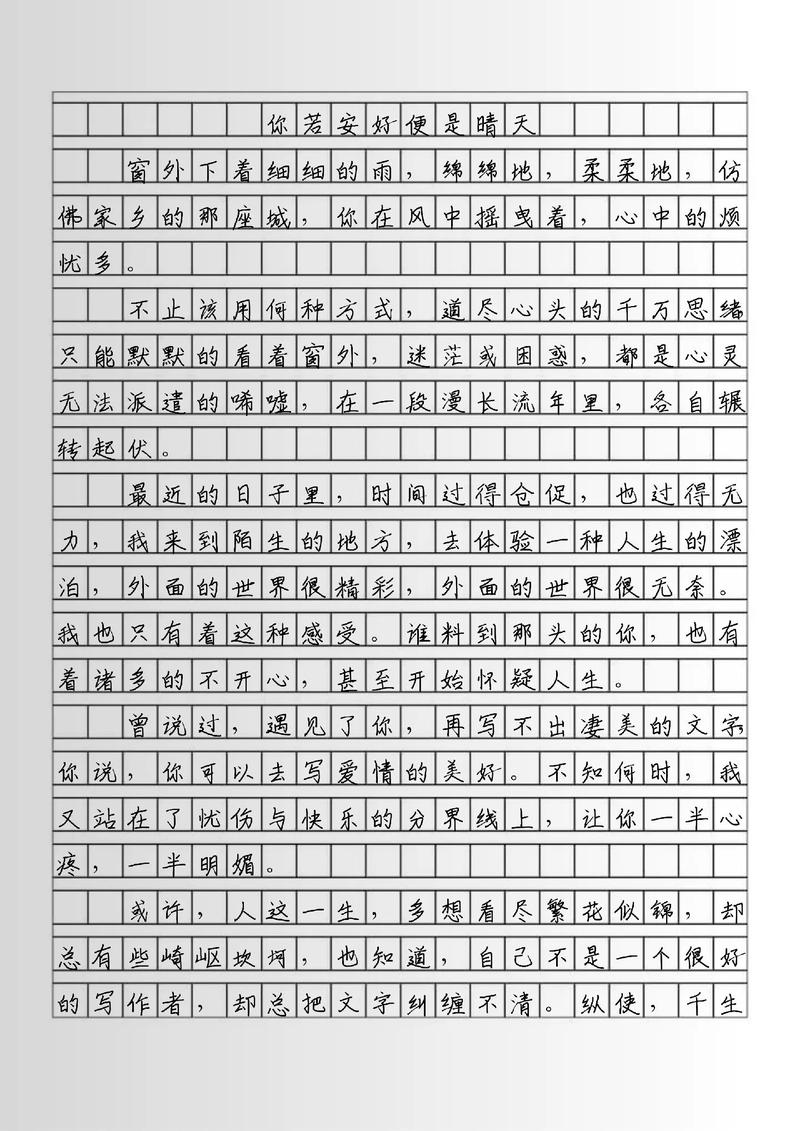 你若安好便是晴天
窗外下着细细的雨，绵绵地，柔柔地，仿
佛家乡的那座城，你在风中摇曳着，心中的烦
忧多。
不止该用何种方式，道尽心头的千万思绪
只能默默的看着窗外，迷茫或困惑，都是心灵
无法派遣的唏嘘，在一段漫长流年里，各自辗
转起伏。
最近的日子里，时间过得仓促，也过得无
力，我来到陌生的地方，去体验一种人生的漂
泊，外面的世界很精彩，外面的世界很无奈。
我也只有着这种感受。谁料到那头的你，也有
着诸多的不开心，甚至开始怀疑人生。
曾说过，遇见了你，再写不出凄美的文字，
你说，你可以去写爱情的美好。不知何时，我
又站在了忧伤与快乐的分界线上，让你一半心
疼，一半明媚。
或许，人这一生，多想看尽繁花似锦，却
总有些崎岖坎坷，也知道，自己不是一个很好
的写作者，却总把文字纠缠不清。纵使，千生